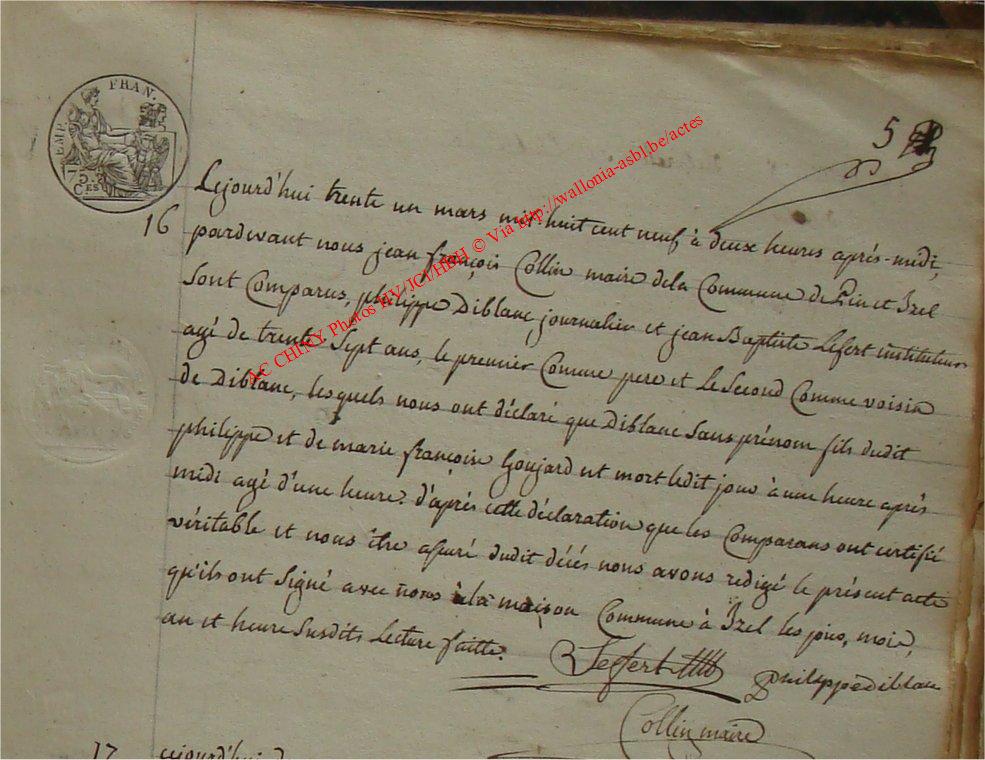 EMP. FRAN.
75. CES
5
16
Cejourd'hui trente un mars mil huit cent neuf à deux heures après-midi,
pardevant nous jean françois Collin maire dela Commune de Pin et Izel
Sont Comparus, philippe Diblanc journalier et jean Baptiste Lefert instituteur
agé de trente Sept ans, le premier Comme pere et le Second Comme voisin
de Diblanc, lesquels nous ont déclaré que Diblanc Sans prénom fils dudit
philippe et de marie françoise Goujard est mort ledit jour à une heure après
midi agé d'une heure. d'après cette déclaration que les Comparans ont certifié
véritable et nous être assuré dudit décés nous avons redigé le présent acte
qu'ils ont Signé avec nous à la maison Commune à Izel les jour, mois,
an et heure Susdits Lecture faitte.
Lefert philippe diblanc
Collin maire
17 cejourd'hui
AC CHINY Photos HV/JCI/HBH © Via http://wallonia-asbl.be/actes